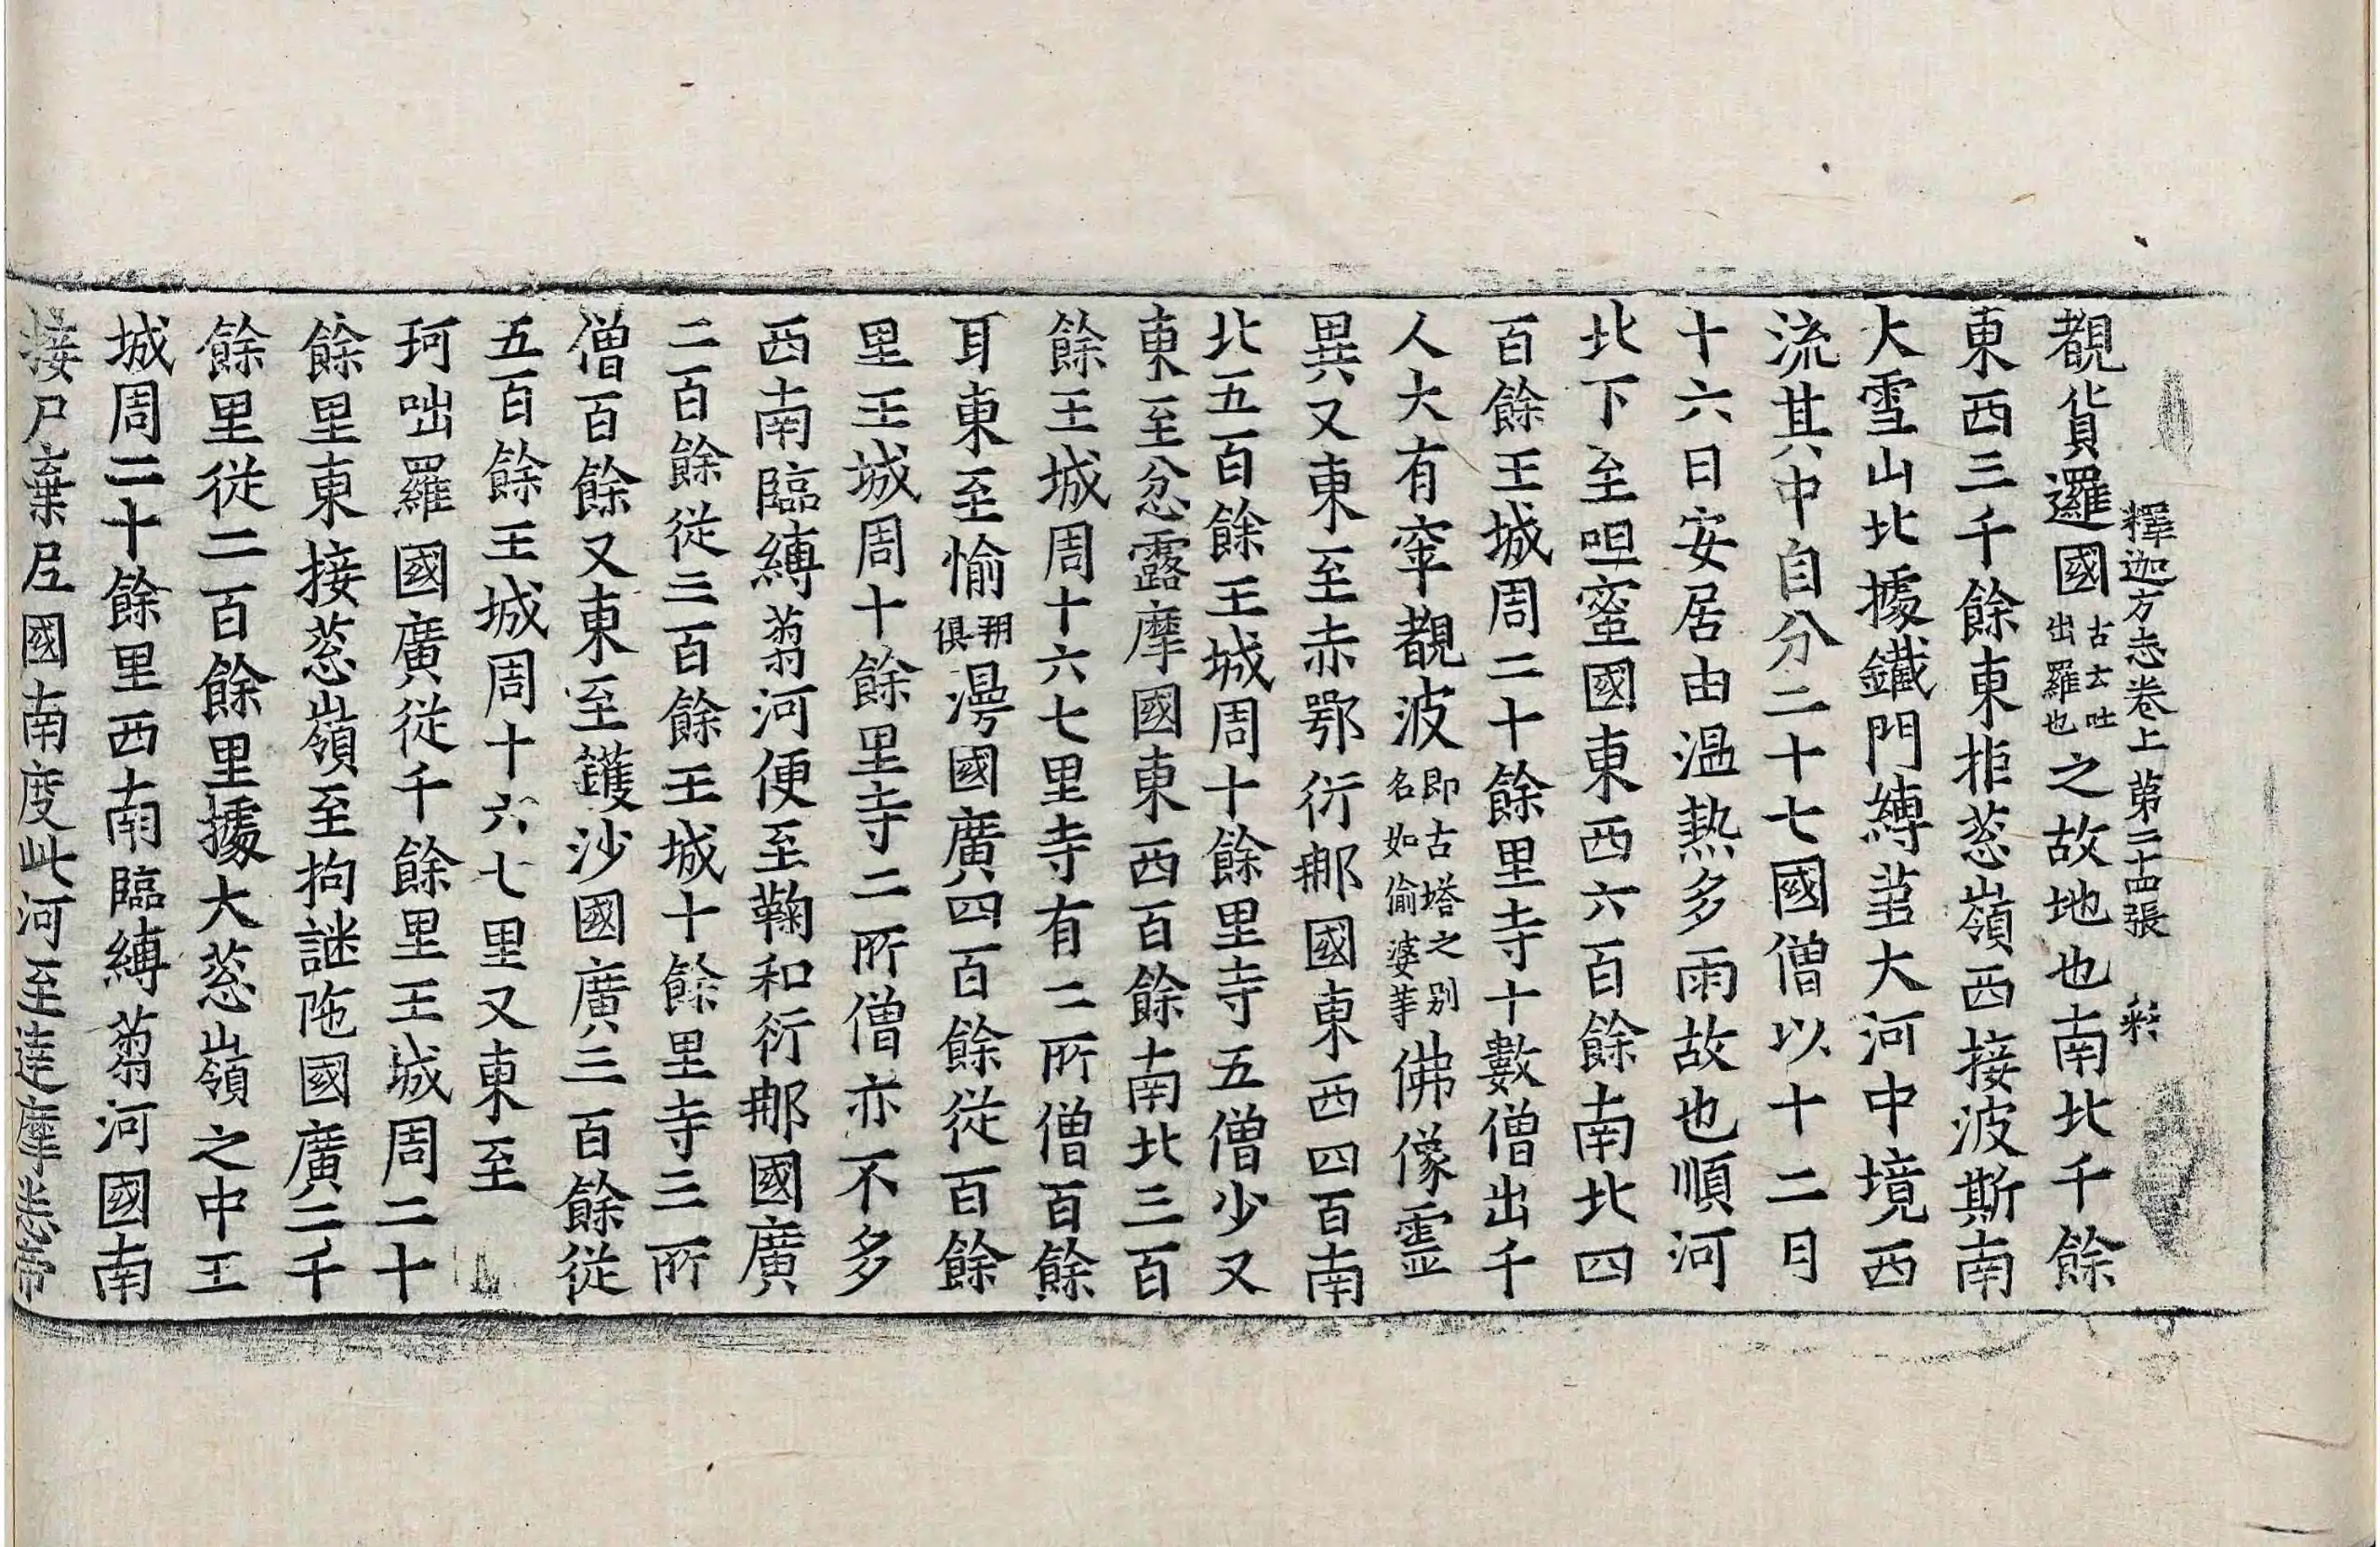 釋迦方志卷上 第二十四張 𢒈
覩貨邏國古云吐出羅也之故地也南北千餘
東西三千餘東拒䓗嶺西接波斯南
大雪山北據鐵門縛蒭大河中境西
流其中自分二十七國僧以十二月
十六日安居由温熱多雨故也順河
北下至呾蜜國東西六百餘南北四
百餘王城周二十餘里寺十數僧出千
人大有窣覩波即古塔之别名如偷婆等佛像靈
異又東至赤鄂衍𨙻國東西四百南
北五百餘王城周十餘里寺五僧少又
東至忿露摩國東西百餘南北三百
餘王城周十六七里寺有二所僧百餘
耳東至愉朔俱漫國廣四百餘從百餘
里王城周十餘里寺二所僧亦不多
西南臨縛蒭河便至鞠和衍𨙻國廣
二百餘從三百餘王城十餘里寺三所
僧百餘又東至鑊沙國廣三百餘從
五百餘王城周十六七里又東至
珂咄羅國廣從千餘里王城周二十
餘里東接䓗嶺至拘謎陁國廣二千
餘里從二百餘里據大䓗嶺之中王
城周二十餘里西南臨縛蒭河國南
接尸棄尼國南度此河至達摩悉帝